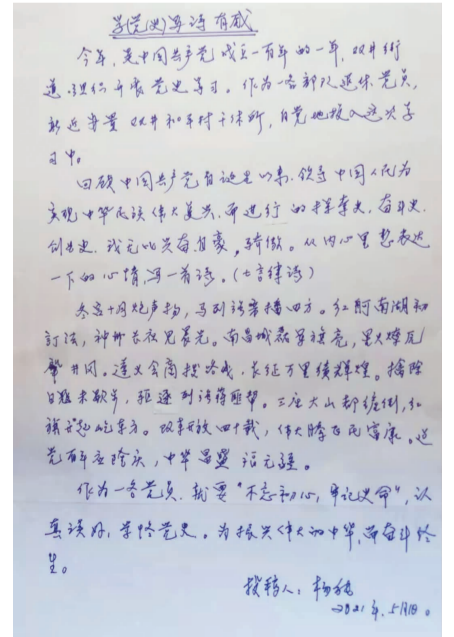 学《党史》写诗有感
今年，是中国共产党成立一百年的一年，双井街
道组织开展党史学习。作为一名部队退休党员，
新近安置双井和平村干休所，自觉地投入这次学
习中。
回顾中国共产党自诞生以来，领导中国人民为
实现中华民族伟大复兴，而进行的探索史，奋斗史，
创业史，我无比兴奋自豪，骄傲。从内心里想表达
一下的心情，写一首诗。（七言律诗）
冬宫十月炮声扬，马列语言播四方。红船南湖初
订法，神州长夜见晨光。南昌城头军旗亮，星火燎原
井冈。遵义会商挽路线，长征万里续辉煌。
日难未歇，驱逐到。三座大山都推倒，红
旗起屹东方。改革开放四十载，伟大腾飞民富康。建
党百年应庆，中华昌盛语无疆。
作为一名党员，就要“不忘初心，牢记使命”，认
真读好，学恪党史。为振兴伟大的中华，而奋斗终
生。
投稿人：杨
2021年.5月1日。